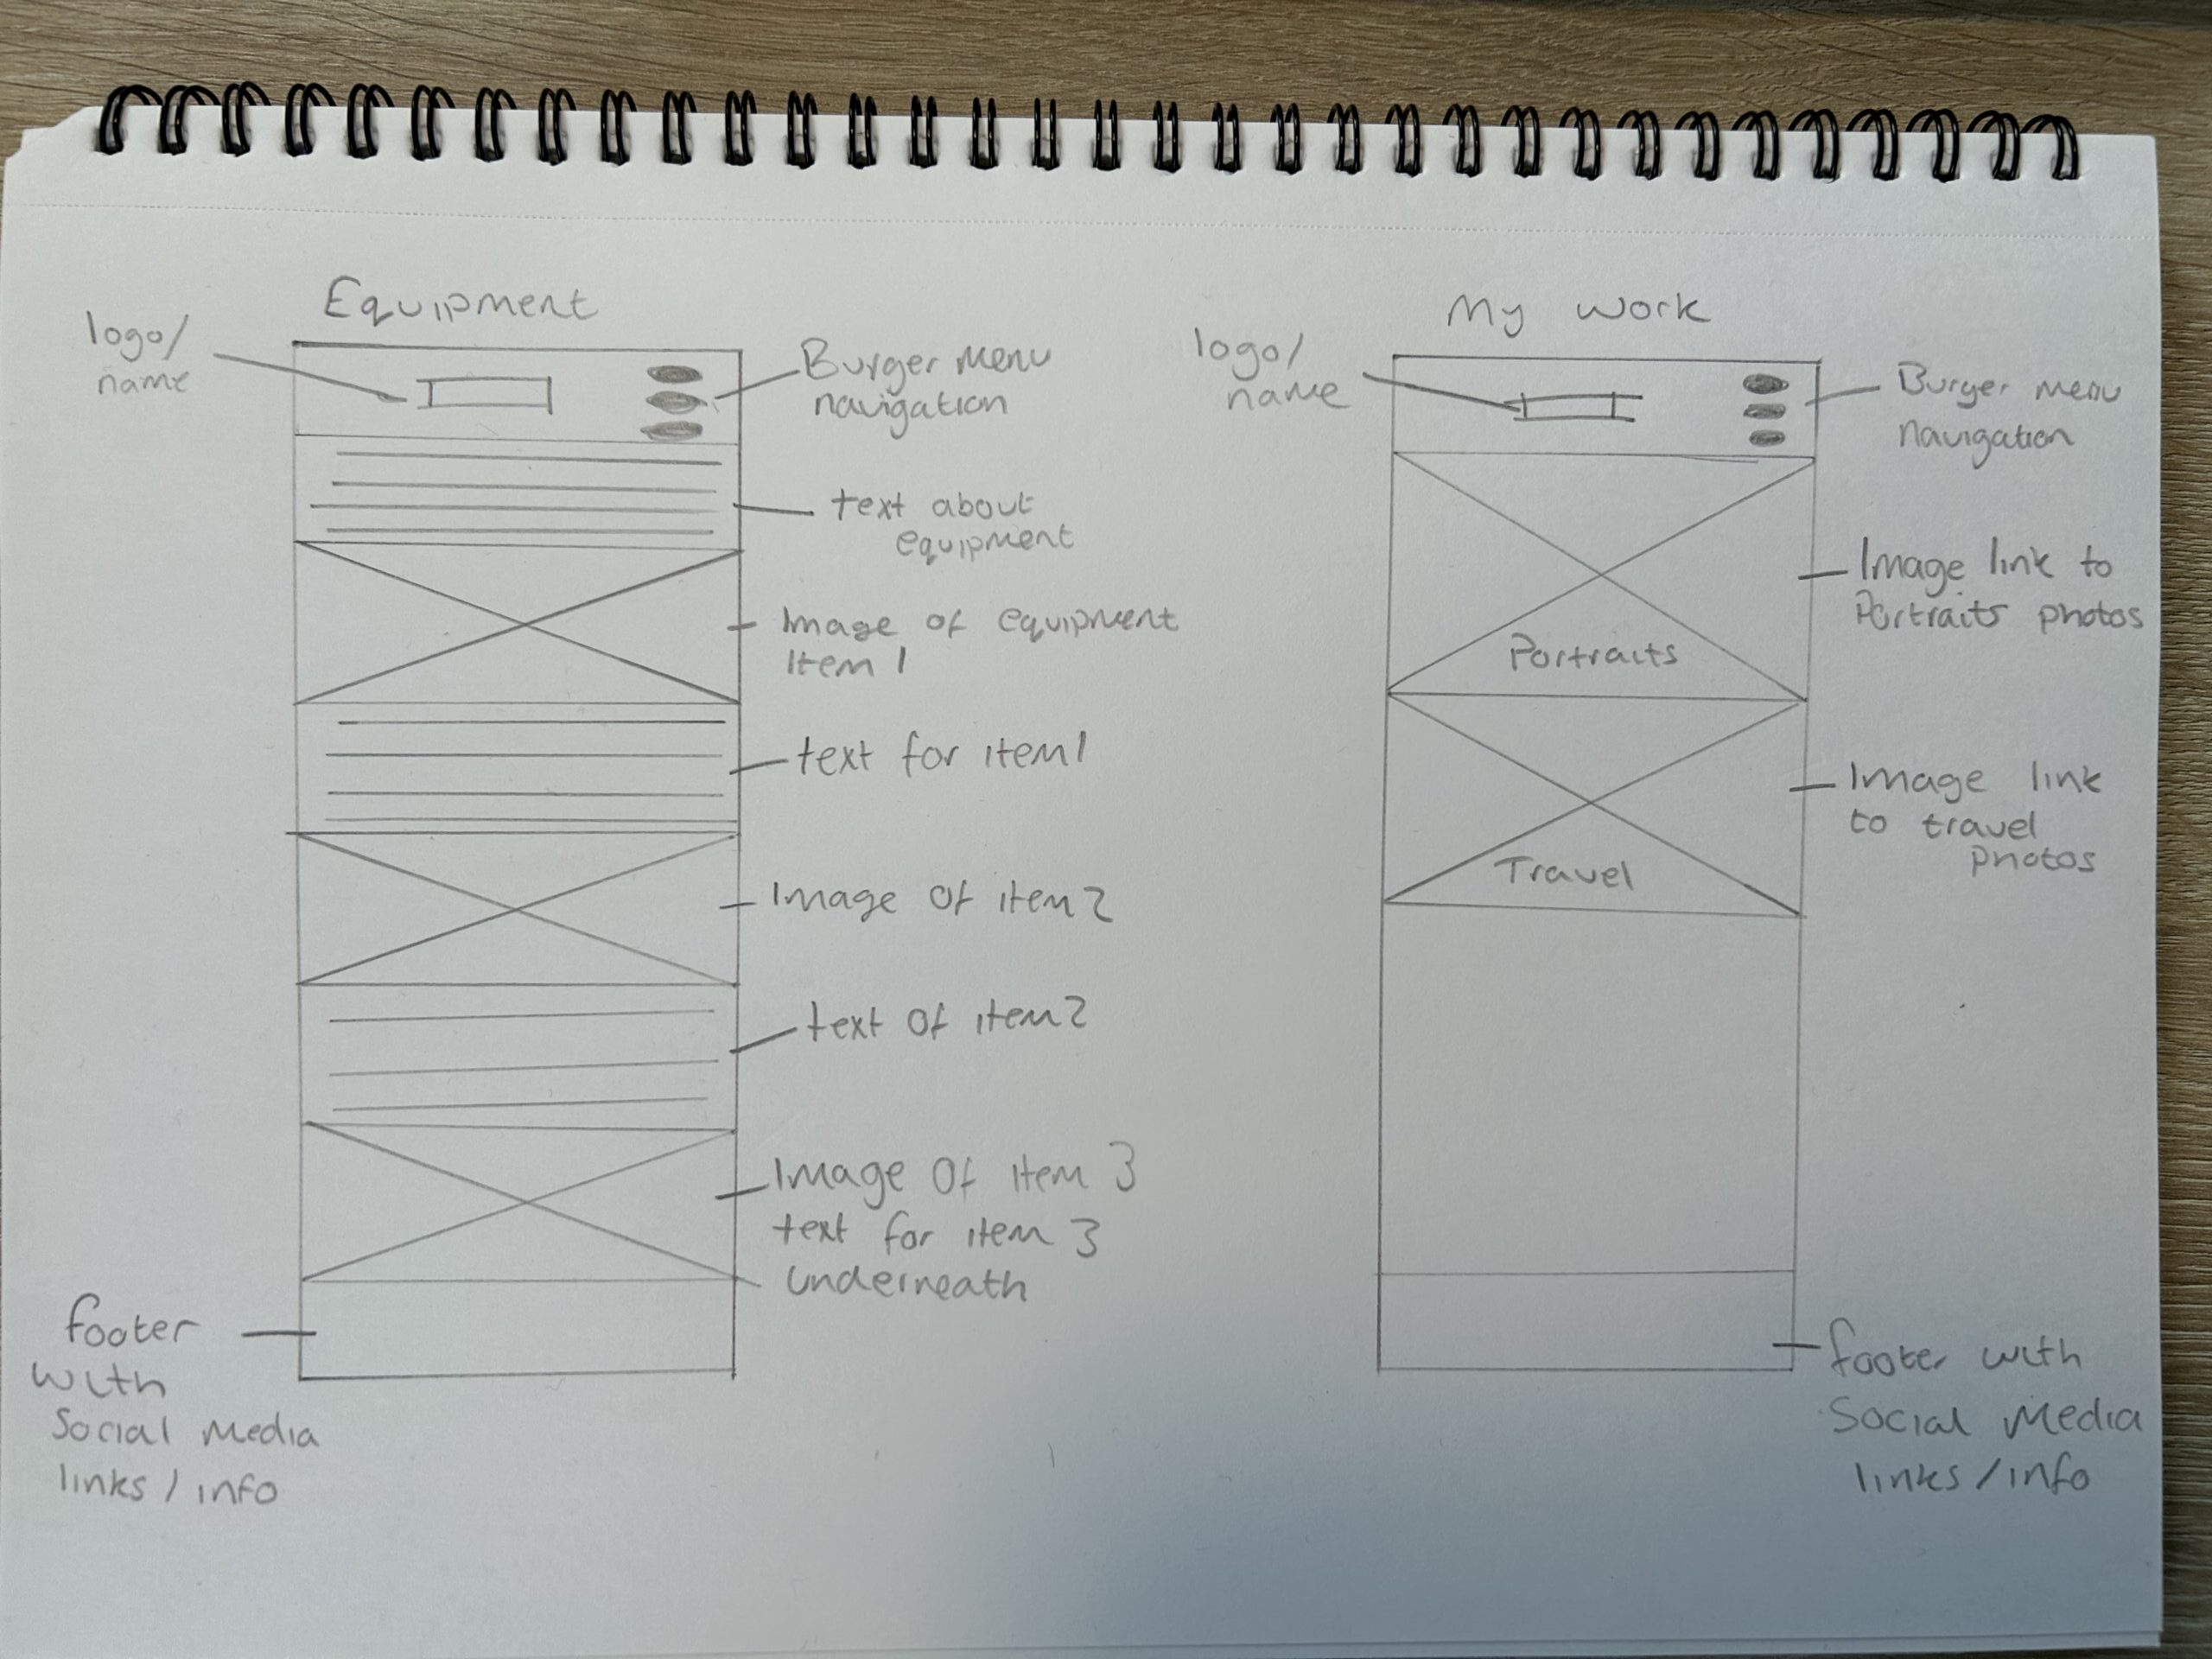 Equipment
logo/
name
Burger menu
navigation
text about
equipment
Image of equipment
item 1
text for item1
Image of item2
text of item2
Image of item 3
text for item 3
underneath
footer
with
Social media
links / info
My work
logo/
name
Burger menu
navigation
Image link to
Portraits photos
Portraits
Image link
to travel
photos
Travel
footer with
Social media
links / info